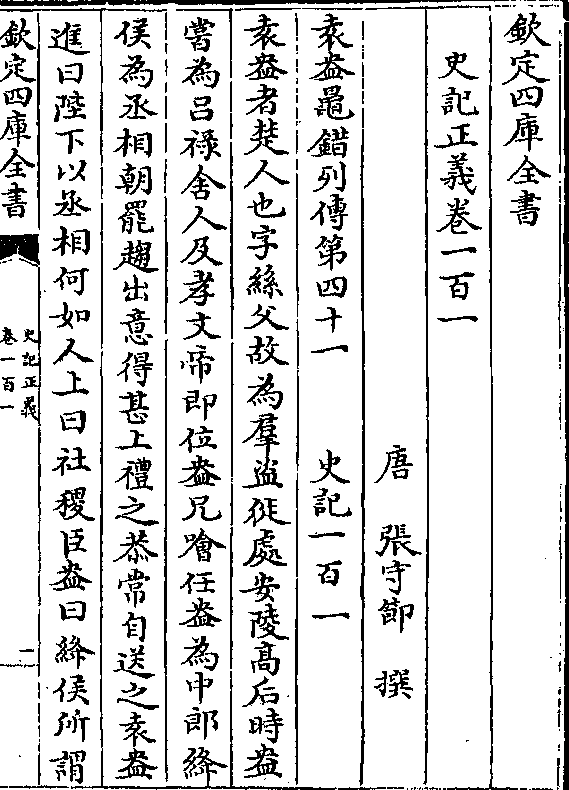 欽定四庫全書
史記正義卷一百一
唐 張守節 撰
袁盎鼂錯列傳第四十一 史記一百一
袁盎者楚人也字絲父故為羣盜徙處安陵髙后時盎
嘗為吕祿舍人及孝文帝即位盎兄噲任盎為中郎絳
侯為丞相朝罷趨出意得甚上禮之恭常自送之袁盎
進曰陛下以丞相何如人上曰社稷臣盎曰絳侯所謂
欽定四庫全書
史記正義
卷一百一
一